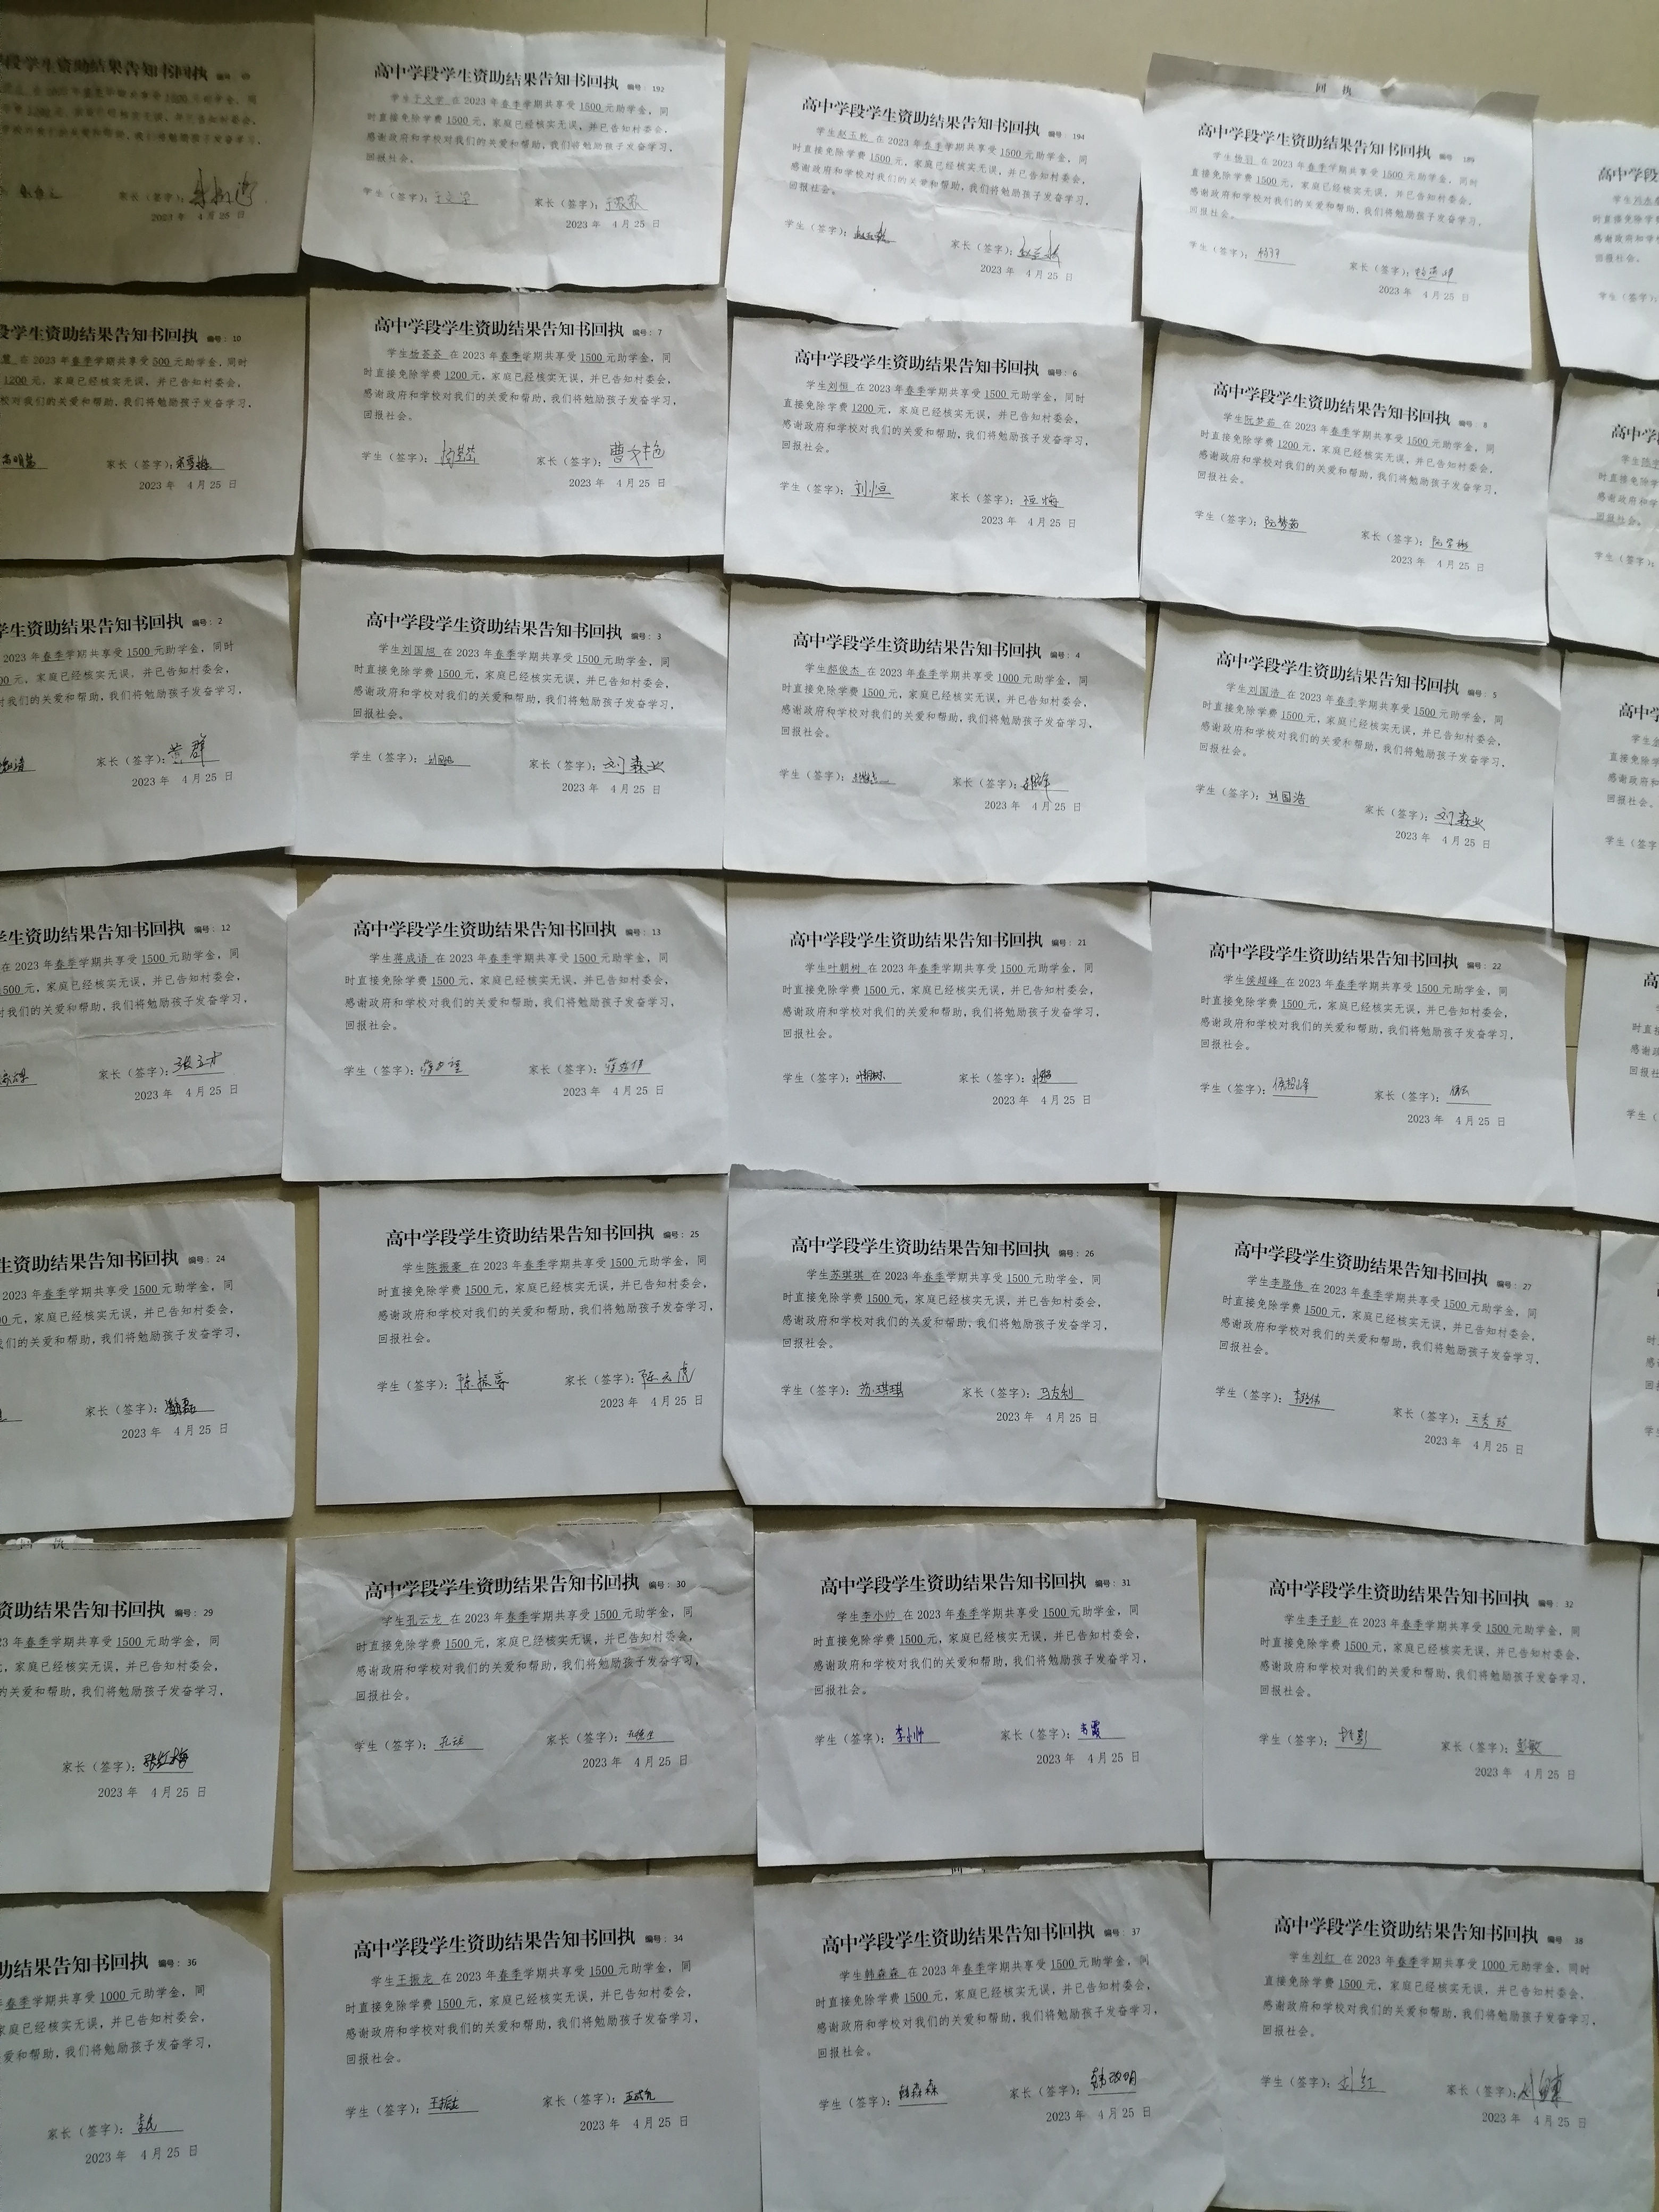 高中学段学生资助结果告知书回执 编号: 192
学生于文学 在 2023 年春季学期共享受 1500 元助学金，同
时直接免除学费 1500 元，家庭已经核实无误，并已告知村委会，
感谢政府和学校对我们的关爱和帮助，我们将勉励孩子发奋学习，
回报社会。
学生（签字）： 家长（签字）：
2023 年 4 月 25 日
高中学段学生资助结果告知书回执 编号: 194
学生赵玉乾 在 2023 年春季学期共享受 1500 元助学金，同
时直接免除学费 1500 元，家庭已经核实无误，并已告知村委会，
感谢政府和学校对我们的关爱和帮助，我们将勉励孩子发奋学习，
回报社会。
学生（签字）： 家长（签字）：
2023 年 4 月 25 日
回 执
高中学段学生资助结果告知书回执 编号: 189
学生杨羽 在 2023 年春季学期共享受 1500 元助学金，同时
直接免除学费 1500 元，家庭已经核实无误，并已告知村委会，
感谢政府和学校对我们的关爱和帮助，我们将勉励孩子发奋学习，
回报社会。
学生（签字）：杨羽 家长（签字）：
2023 年 4 月 25 日
段学生资助结果告知书回执 编号: 10
在 2023 年春季学期共享受 500 元助学金，同时
1200 元，家庭已经核实无误，并已告知村委会
校对我们的关爱和帮助，我们将勉励孩子发奋学习，
家长（签字）：
2023 年 4 月 25 日
高中学段学生资助结果告知书回执 编号: 7
学生杨荟荟 在 2023 年春季学期共享受 1500 元助学金，同
时直接免除学费 1200 元，家庭已经核实无误，并已告知村委会，
感谢政府和学校对我们的关爱和帮助，我们将勉励孩子发奋学习，
回报社会。
学生（签字）： 家长（签字）：
2023 年 4 月 25 日
高中学段学生资助结果告知书回执 编号: 6
学生刘恒 在 2023 年春季学期共享受 1500 元助学金，同时
直接免除学费 1200 元，家庭已经核实无误，并已告知村委会，
感谢政府和学校对我们的关爱和帮助，我们将勉励孩子发奋学习，
回报社会。
学生（签字）：刘恒 家长（签字）：
2023 年 4 月 25 日
高中学段学生资助结果告知书回执 编号: 8
学生阮梦茹 在 2023 年春季学期共享受 1500 元助学金，同
时直接免除学费 1200 元，家庭已经核实无误，并已告知村委会，
感谢政府和学校对我们的关爱和帮助，我们将勉励孩子发奋学习，
回报社会。
学生（签字）：阮梦茹 家长（签字）：
2023 年 4 月 25 日
学生资助结果告知书回执 编号: 2
2023 年春季学期共享受 1500 元助学金，同时
元，家庭已经核实无误，并已告知村委会，
对我们的关爱和帮助，我们将勉励孩子发奋学习，
家长（签字）：黄群
2023 年 4 月 25 日
高中学段学生资助结果告知书回执 编号: 3
学生刘国旭 在 2023 年春季学期共享受 1500 元助学金，同
时直接免除学费 1500 元，家庭已经核实无误，并已告知村委会，
感谢政府和学校对我们的关爱和帮助，我们将勉励孩子发奋学习，
回报社会。
学生（签字）：刘国旭 家长（签字）：刘森业
2023 年 4 月 25 日
高中学段学生资助结果告知书回执 编号: 4
学生郝俊杰 在 2023 年春季学期共享受 1000 元助学金，同
时直接免除学费 1500 元，家庭已经核实无误，并已告知村委会，
感谢政府和学校对我们的关爱和帮助，我们将勉励孩子发奋学习，
回报社会。
学生（签字）： 家长（签字）：
2023 年 4 月 25 日
高中学段学生资助结果告知书回执 编号: 5
学生刘国浩 在 2023 年春季学期共享受 1500 元助学金，同
时直接免除学费 1500 元，家庭已经核实无误，并已告知村委会，
感谢政府和学校对我们的关爱和帮助，我们将勉励孩子发奋学习，
回报社会。
学生（签字）：刘国浩 家长（签字）：刘森业
2023 年 4 月 25 日
学生资助结果告知书回执 编号: 12
在 2023 年春季学期共享受 1500 元助学金，同
1500 元，家庭已经核实无误，并已告知村委会，
对我们的关爱和帮助，我们将勉励孩子发奋学习，
家长（签字）：张立才
2023 年 4 月 25 日
高中学段学生资助结果告知书回执 编号: 13
学生蒋成语 在 2023 年春季学期共享受 1500 元助学金，同
时直接免除学费 1500 元，家庭已经核实无误，并已告知村委会，
感谢政府和学校对我们的关爱和帮助，我们将勉励孩子发奋学习，
回报社会。
学生（签字）： 家长（签字）：
2023 年 4 月 25 日
高中学段学生资助结果告知书回执 编号: 21
学生叶朝树 在 2023 年春季学期共享受 1500 元助学金，同
时直接免除学费 1500 元，家庭已经核实无误，并已告知村委会，
感谢政府和学校对我们的关爱和帮助，我们将勉励孩子发奋学习，
回报社会。
学生（签字）：叶朝树 家长（签字）：
2023 年 4 月 25 日
高中学段学生资助结果告知书回执 编号: 22
学生侯超峰 在 2023 年春季学期共享受 1500 元助学金，同
时直接免除学费 1500 元，家庭已经核实无误，并已告知村委会，
感谢政府和学校对我们的关爱和帮助，我们将勉励孩子发奋学习，
回报社会。
学生（签字）：侯超峰 家长（签字）：
2023 年 4 月 25 日
生资助结果告知书回执 编号: 24
2023 年春季学期共享受 1500 元助学金，同
元，家庭已经核实无误，并已告知村委会，
我们的关爱和帮助，我们将勉励孩子发奋学习，
家长（签字）：
2023 年 4 月 25 日
高中学段学生资助结果告知书回执 编号: 25
学生陈振豪 在 2023 年春季学期共享受 1500 元助学金，同
时直接免除学费 1500 元，家庭已经核实无误，并已告知村委会，
感谢政府和学校对我们的关爱和帮助，我们将勉励孩子发奋学习，
回报社会。
学生（签字）：陈振豪 家长（签字）：陈云虎
2023 年 4 月 25 日
高中学段学生资助结果告知书回执 编号: 26
学生苏琪琪 在 2023 年春季学期共享受 1500 元助学金，同
时直接免除学费 1500 元，家庭已经核实无误，并已告知村委会，
感谢政府和学校对我们的关爱和帮助，我们将勉励孩子发奋学习，
回报社会。
学生（签字）：苏琪琪 家长（签字）：马友利
2023 年 4 月 25 日
高中学段学生资助结果告知书回执 编号: 27
学生李路伟 在 2023 年春季学期共享受 1500 元助学金，同
时直接免除学费 1500 元，家庭已经核实无误，并已告知村委会，
感谢政府和学校对我们的关爱和帮助，我们将勉励孩子发奋学习，
回报社会。
学生（签字）：李路伟 家长（签字）：
2023 年 4 月 25 日
资助结果告知书回执 编号: 29
年春季学期共享受 1500 元助学金，同
家庭已经核实无误，并已告知村委会，
的关爱和帮助，我们将勉励孩子发奋学习，
家长（签字）：张红梅
2023 年 4 月 25 日
高中学段学生资助结果告知书回执 编号: 30
学生孔云龙 在 2023 年春季学期共享受 1500 元助学金，同
时直接免除学费 1500 元，家庭已经核实无误，并已告知村委会，
感谢政府和学校对我们的关爱和帮助，我们将勉励孩子发奋学习，
回报社会。
学生（签字）： 家长（签字）：
2023 年 4 月 25 日
高中学段学生资助结果告知书回执 编号: 31
学生李小帅 在 2023 年春季学期共享受 1500 元助学金，同
时直接免除学费 1500 元，家庭已经核实无误，并已告知村委会，
感谢政府和学校对我们的关爱和帮助，我们将勉励孩子发奋学习，
回报社会。
学生（签字）：李小帅 家长（签字）：
2023 年 4 月 25 日
高中学段学生资助结果告知书回执 编号: 32
学生李子彭 在 2023 年春季学期共享受 1500 元助学金，同
时直接免除学费 1500 元，家庭已经核实无误，并已告知村委会，
感谢政府和学校对我们的关爱和帮助，我们将勉励孩子发奋学习，
回报社会。
学生（签字）： 家长（签字）：彭敏
2023 年 4 月 25 日
助结果告知书回执 编号: 36
年春季学期共享受 1000 元助学金，同
家庭已经核实无误，并已告知村委会，
爱和帮助，我们将勉励孩子发奋学习，
家长（签字）：
2023 年 4 月 25 日
高中学段学生资助结果告知书回执 编号: 34
学生王振龙 在 2023 年春季学期共享受 1500 元助学金，同
时直接免除学费 1500 元，家庭已经核实无误，并已告知村委会，
感谢政府和学校对我们的关爱和帮助，我们将勉励孩子发奋学习，
回报社会。
学生（签字）：王振龙 家长（签字）：
2023 年 4 月 25 日
高中学段学生资助结果告知书回执 编号: 37
学生韩森森 在 2023 年春季学期共享受 1500 元助学金，同
时直接免除学费 1500 元，家庭已经核实无误，并已告知村委会，
感谢政府和学校对我们的关爱和帮助，我们将勉励孩子发奋学习，
回报社会。
学生（签字）：韩森森 家长（签字）：韩改明
2023 年 4 月 25 日
高中学段学生资助结果告知书回执 编号: 38
学生刘红 在 2023 年春季学期共享受 1000 元助学金，同时
直接免除学费 1500 元，家庭已经核实无误，并已告知村委会，
感谢政府和学校对我们的关爱和帮助，我们将勉励孩子发奋学习，
回报社会。
学生（签字）：刘红 家长（签字）：
2023 年 4 月 25 日